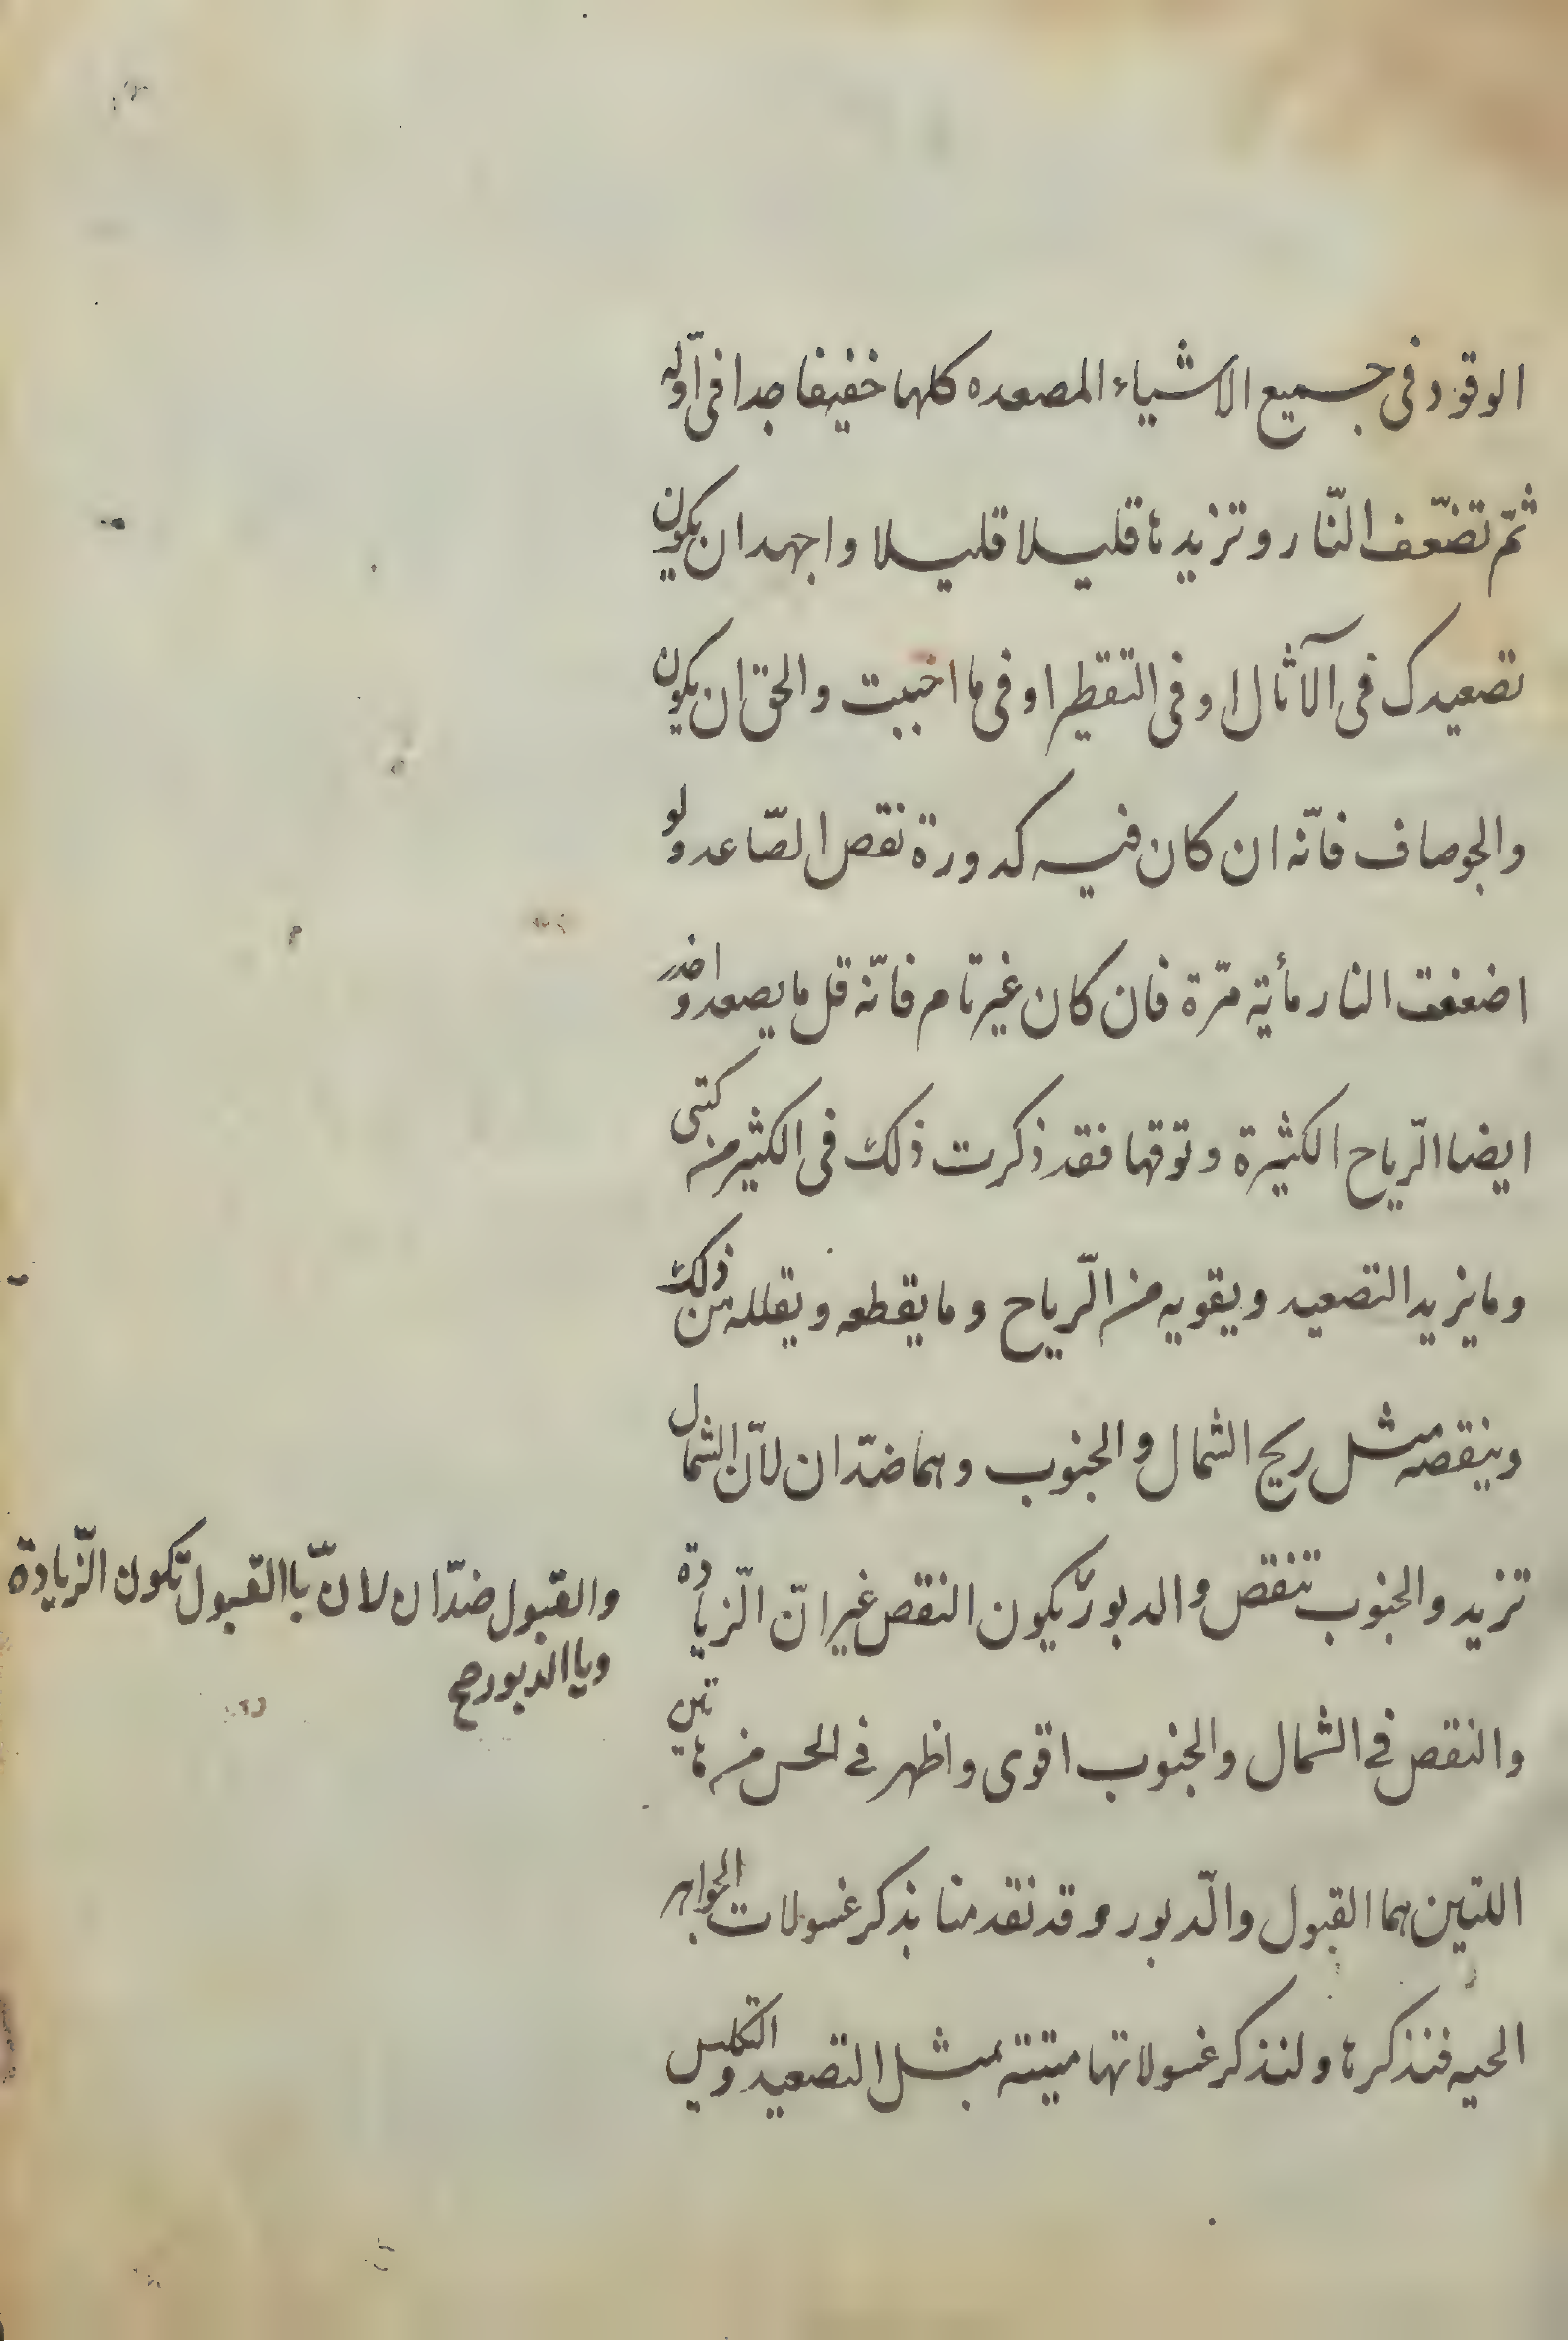 الوقود فى جميع الاشياء المصعده كلها خفيفا جدا فى اوّله
ثمّ تضّعف النّار وتزيدها قليلا قليلا واجهد ان يكون
تصعيدك فى الآثال او فى التقطير او فى ما احببت والحق ان يكون
والجو صاف فانّه ان كان فيه كدورة نقص الصّاعد ولو
اضعفت النار مأية مّرة فان كان غير تام فانّه قل ما يصعد واحذر
ايضا الّرياح الكثيرة وتوقها فقد ذكرت ذلك فى الكثير من كتبى
وما يزيد التصعيد ويقويه من الّرياح وما يقطعه ويقلله من ذلك
وينقصه مثل ريح الشمال والجنوب وهما ضدّان لانّ الشمال
تزيد والجنوب تنقص والدبور يكون النقص غير انّ الّزيادة
والقبول ضدّان لانّ باالقبول تكون الّزيادة
وباالدبور صح
والنقص فى الشمال والجنوب اقوى واظهر فى الحس من هاتين
اللتين هما القبول والّدبور وقد تقدمنا بذكر غسولات الجواهر
الحيه فنذكرها ولنذكر غسولاتها ميتتة بمثل التصعيد والتكليس